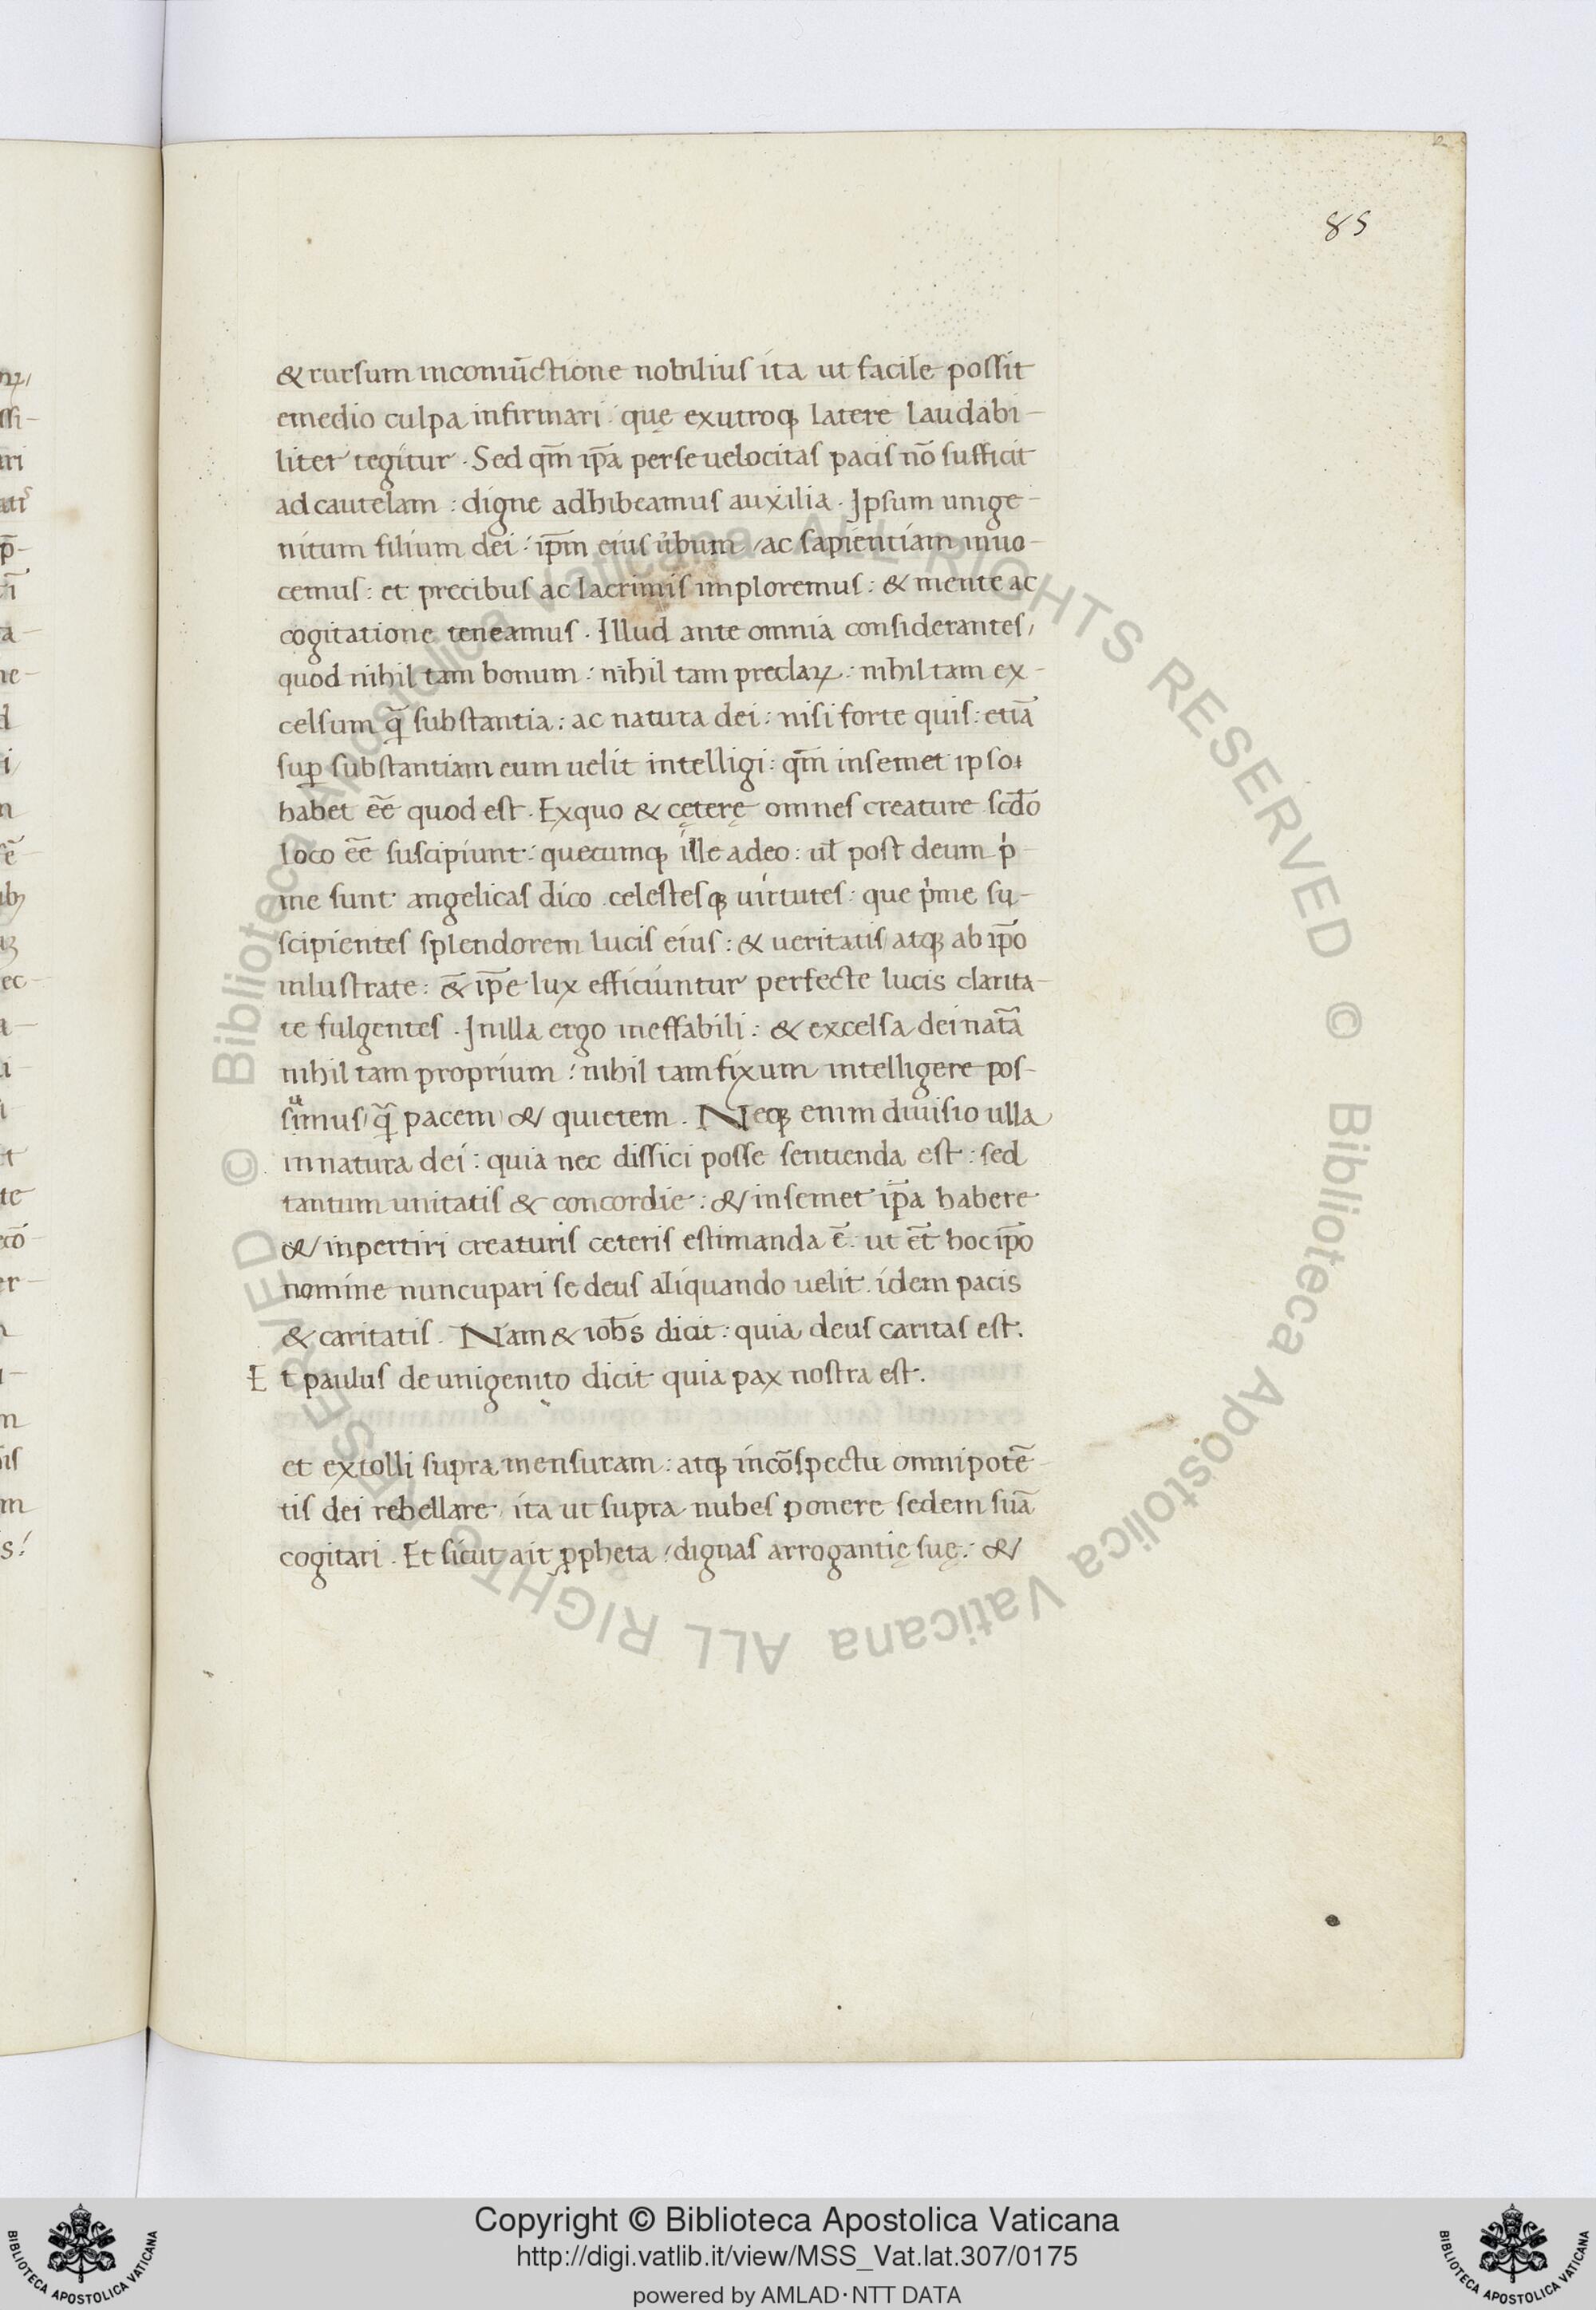 85
& rursum inconiūctione nobilius ita ut facile possit
emedio culpa infirmari : quę exutroq; latere laudabi-
liter tegitur . Sed qm̄ ip̄a perse uelocitas pacis nō sufficit
ad cautelam : digne adhibeamus auxilia . Ipsum unige-
nitum filium dei : ip̄m eius ūbum / ac sapientiam inuo-
cemus : et precibus ac lacrimis imploremus : & mente ac
cogitatione teneamus . Illud ante omnia considerantes /
quod nihil tam bonum : nihil tam preclaꝝ : nihil tam ex-
celsum q̄ substantia : ac natura dei : nisi forte quis : etiā
suꝑ substantiam eum uelit intelligi : qm̄ insemet ipso
habet eē quod est . Exquo & cęterę omnes creature scdō
loco eē suscipiunt : quecumq; ille adeo : ul̄ post deum pͥ-
me sunt angelicas dico celestesq; uirtutes : que pͥme su-
scipientes splendorem lucis eius : & ueritatis / atq; ab ip̄o
inlustrate : &̄ ip̄e lux efficiuntur perfecte lucis clarita-
te fulgentes . Inilla ergo ineffabili : & excelsa dei nat̄a
nihil tam proprium : nihil tam fixum intelligere pos-
simus / q̄ pacem & quietem . Neq; enim diuisio ulla
innatura dei : quia nec dissici posse sentienda est : sed
tantum unitatis & concordie : & insemet ip̄a habere
& inpertiri creaturis ceteris estimanda ē . ut et̄ hoc ip̄o
nomine nuncupari se deus aliquando uelit . idem pacis
& caritatis . Nam & ioh̄s dicit : quia deus caritas est .
Et paulus de unigenito dicit quia pax nostra est .
et extolli supra mensuram : atq; incōspectu omnipotē-
tis dei rebellare / ita ut supra nubes ponere sedem suā
cogitari . Et sicut ait ꝓpheta / dignas arrogantię suę : &
Copyright © Biblioteca Apostolica Vaticana
http://digi.vatlib.it/view/MSS_Vat.lat.307/0175
powered by AMLAD·NTT DATA
BIBLIOTECA APOSTOLICA VATICANA
BIBLIOTECA APOSTOLICA VATICANA
© Biblioteca Apostolica Vaticana ALL RIGHTS RESERVED © Biblioteca Apostolica Vaticana ALL RIGHTS RESERVED